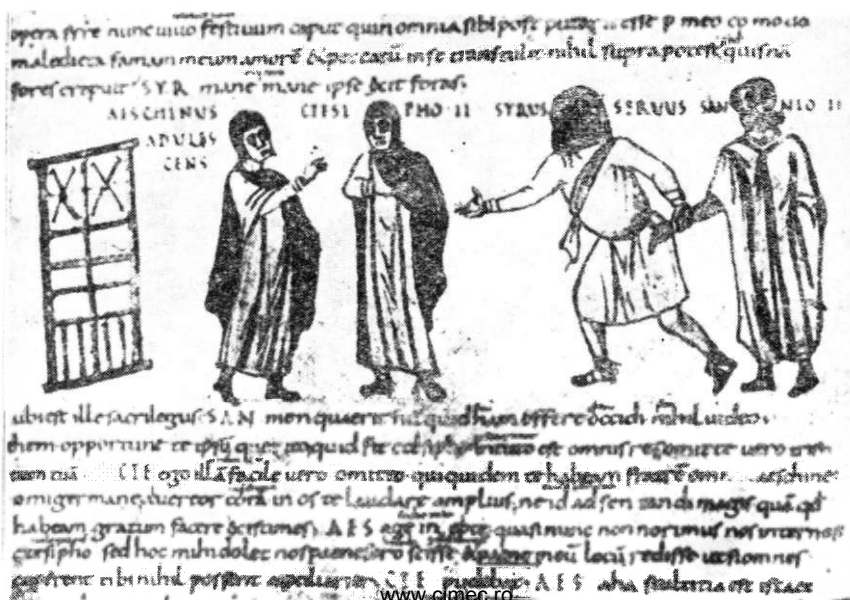 opera fert nunc vivo festivum caput quin omnia sibi post putavit esse p meo comodo
maledicta famam meum amore & peccatu in se transtulit nihil supra potest quisna
fores crepuit SYR mane mane ipse exit foras
AESCHINUS CTESIPHO II SYRUS SERVUS SANNIO II
ADULES
CENS
ubi est ille sacrilegus SAN men quaerit nu quid nam effert occidi nihil video
ehem opportune te ipsu quero quid fit ctesipho in tuto est omnis res omitte vero
tiam tua CTE ego illa facile vero omitto qui quidem te habeam fratre omi aeschine
omi germane vereor cora in os te laudare amplius ne id adsentandi magis qua qd
habeam gratum facere existumes AES age inepte quasi nunc non norimus nos inter nos
ctesipho sed hoc mihi dolet nos paene sero scisse & paene in eu locu redisse ut si omnes
cuperent tibi nihil possent auxiliarier CTE pudebat AES aha stultitia est istaec
www.cimec.ro